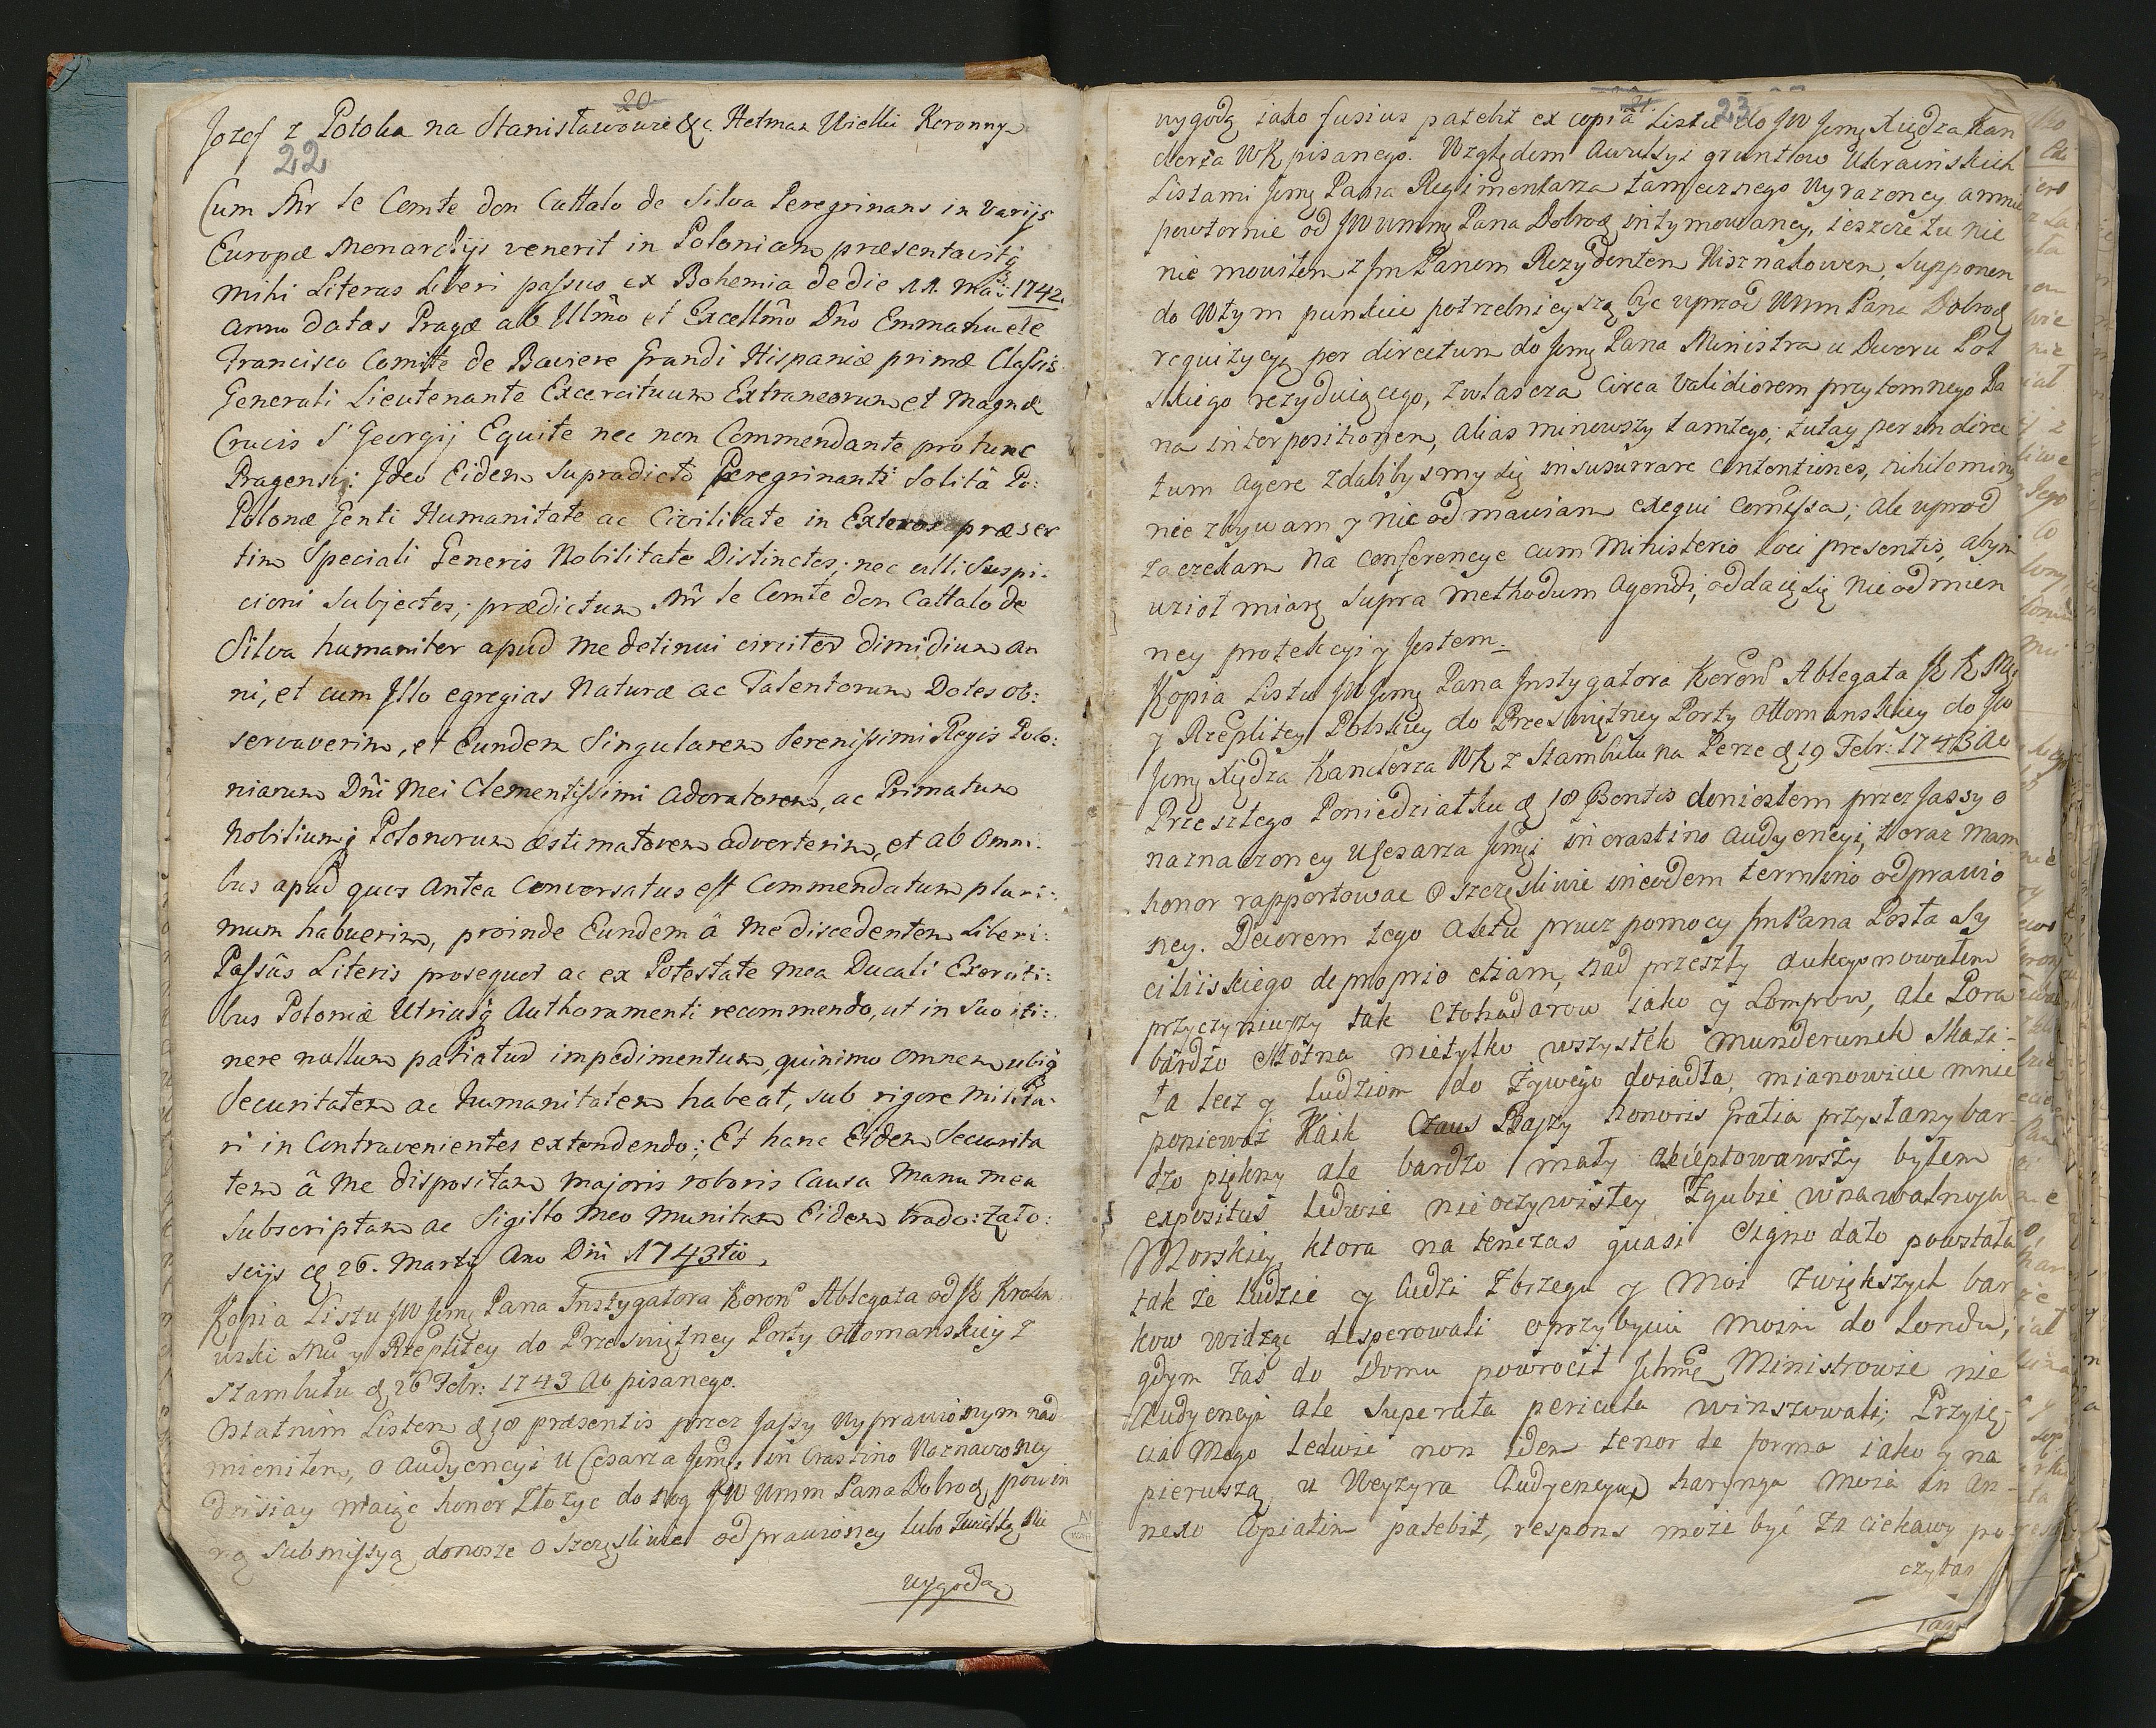 20
Jozef z Potoka na Stanisławowie &c. Hetman Wielki Koronny
22
Cum Mr le Comte don Cattalo de Silva Peregrinans in varijs
Europæ Monarchijs venerit in Poloniam præsentavitq
mihi Literas liberi passus ex Bohemia de die 11. Maij 1742.
anno datas Pragæ ab Illmo et Excellmo Dno Emmanuele
Francisco Comite de Baviere Grandi Hispaniæ primæ Classis
Generali Lieutenante Excercituum Extraneorum et Magnæ
Crucis S Georgij Equite nec non Commendante pro tunc
Pragensi: Ideo Eidem Supradicto Peregrinanti Solitâ Po:
Polonæ Genti Humanitate ac Civilitate in Exteros præser
tim Speciali Generis Nobilitate Distinctos; nec ulli Suspi:
cioni Subjectos; prædictum Mr le Comte don Cattalo de
Silva humaniter apud me detinui circiter dimidium an
ni, et cum Illo egregias Naturæ ac Talentorum Dotes ob:
servaverim, et Eundem Singularem Serenissimi Regis Polo:
niarum Dni Mei Clementissimi adoratorem, ac Primatum
Nobiliumq Polonorum æstimatorem adverterim, et ab omni:
bus apud quos antea Conversatus est Commendatum pluri:
mum habuerim, proinde Eundem â me discedentem Liberi:
Passûs Literis prosequor ac ex Potestate mea Ducali Exerciti:
bus Poloniæ Utriusq Authoramenti recommendo, ut in Suo iti:
nere nullum patiatur impedimentum, quinimo omnem ubiq
Securitatem ac humanitatem habeat, sub rigore milita:
ri in Contravenientes extendendo; Et hanc Eidem Securita
tem â me dispositam majoris roboris Causa Manu mea
Subscriptam ac Sigillo meo munitam Eidem trado: Zało:
scijs d 26. Martij Ano Dni 1743tio,
Kopia Listu JW Jemę Pana Instygatora Koron Ablegata od JK Krolew
wski Mci y Rzeplitey do Przeswiętney Porty ottomanskiey z
Stambułu d 26 Febr: 1743 Ao pisanego.
Ostatnim Listem d 18 præsentis przez Jassy Wyprawionym nad
mieniłem, o Audyencyi u Cesarza Jemci, in Crastino Naznaczoney
dzisiay maiąc honor złożyc do nog JW Wmm Pana Dobrod, powin
ną Submissyą donoszę o szczęsliwie odprawioney lubo
wygodą
21
23
wygodą iako fusius patebit ex copia Listu do JW Jemę Xiędza Kan
clerza WK pisanego. Względem Awulsyi gruntow Ukrainskich
Listami Jemę Pana Regimentarza tamecznego Wyrazoney a mnie
powtornie od JW Wmmę Pana Dobrod intymowaney, ieszcze tu nie
nie mowiłem z Jm Panem Rezydentem Wisznakowem, Supponen
do Wtym punkcie potrzebnieyszą być uprzod Wmm Pana Dobrod
requizycyę per directum do Jemę Pana Ministra u Dworu Pol
skiego rezyduiącego, zwłaszcza Circa Validiorem przytomnego Pa
na interpositionem, alias minowszy tamtego, tutay per indirec
tum agere zdaliby smy się insusurrare Contentiones, nihilominus
nie zbywam y nie odmawiam exequi Comissa; ale uprzod
zaczekam na Conferencye cum Ministerio Loci presentis, abym
wzioł miarę Supra Methodum Agendi, oddaię się Nieodmien
ney protekcyi y Jestem.
Kopia Listu JW Jemę Pana Instygatora Koron Ablegata JK K Mci
y Rzeplitey Polskiey do Przeswiętney Porty ottomanskiey do JW
Jemę Xiędza Kanclerza WK z Stambułu na Perze d 19 Febr: 1743 Ao
Przeszłego Poniedziałku d 18 psentis doniosłem przez Jassy o
naznaczoney u Cesarza Jemci in crastino Audyencyi, teraz mam
honor rapportowac o szczęsliwie in eodem termino odprawio
ney. Decorem tego Aktu przez pomocy Jm Pana Posta Sy
ciliiskiego de proprio etiam, nad przeszły aukcyonowałem
przyczyniwszy tak Czohadarow iako y Pompow, ale Pora
bardzo słotna nietylko wszystek munderunek Skazi:
ła lecz y ludziom do żywego dojadła, mianowicie mnie
poniewaz Kaik Czaus Baszy honoris Gratia przysłany bar
dzo piękny ale bardzo mały akceptowawszy byłem
expositus ledwie nieoczywistey zgubie wnawalnosci
Morskiey, ktora na tenczas quasi Signo dato powstała
tak że ludzie y cudzi z brzegu y Moi zwiększych bar
kow widząc desperowali o przybyciu moim do Londu,
gdym zas do Domu powrocił Ichmę Ministrowie nie
Audyencyi ale Superata pericula winszowali; Przyię
cia Mego ledwie non idem tenor de forma iako y na
pierwszą u Wezyra Audyencyą, haranga moia in an-
nexo Copiatim patebit, respons może być za ciekawy po
czytan